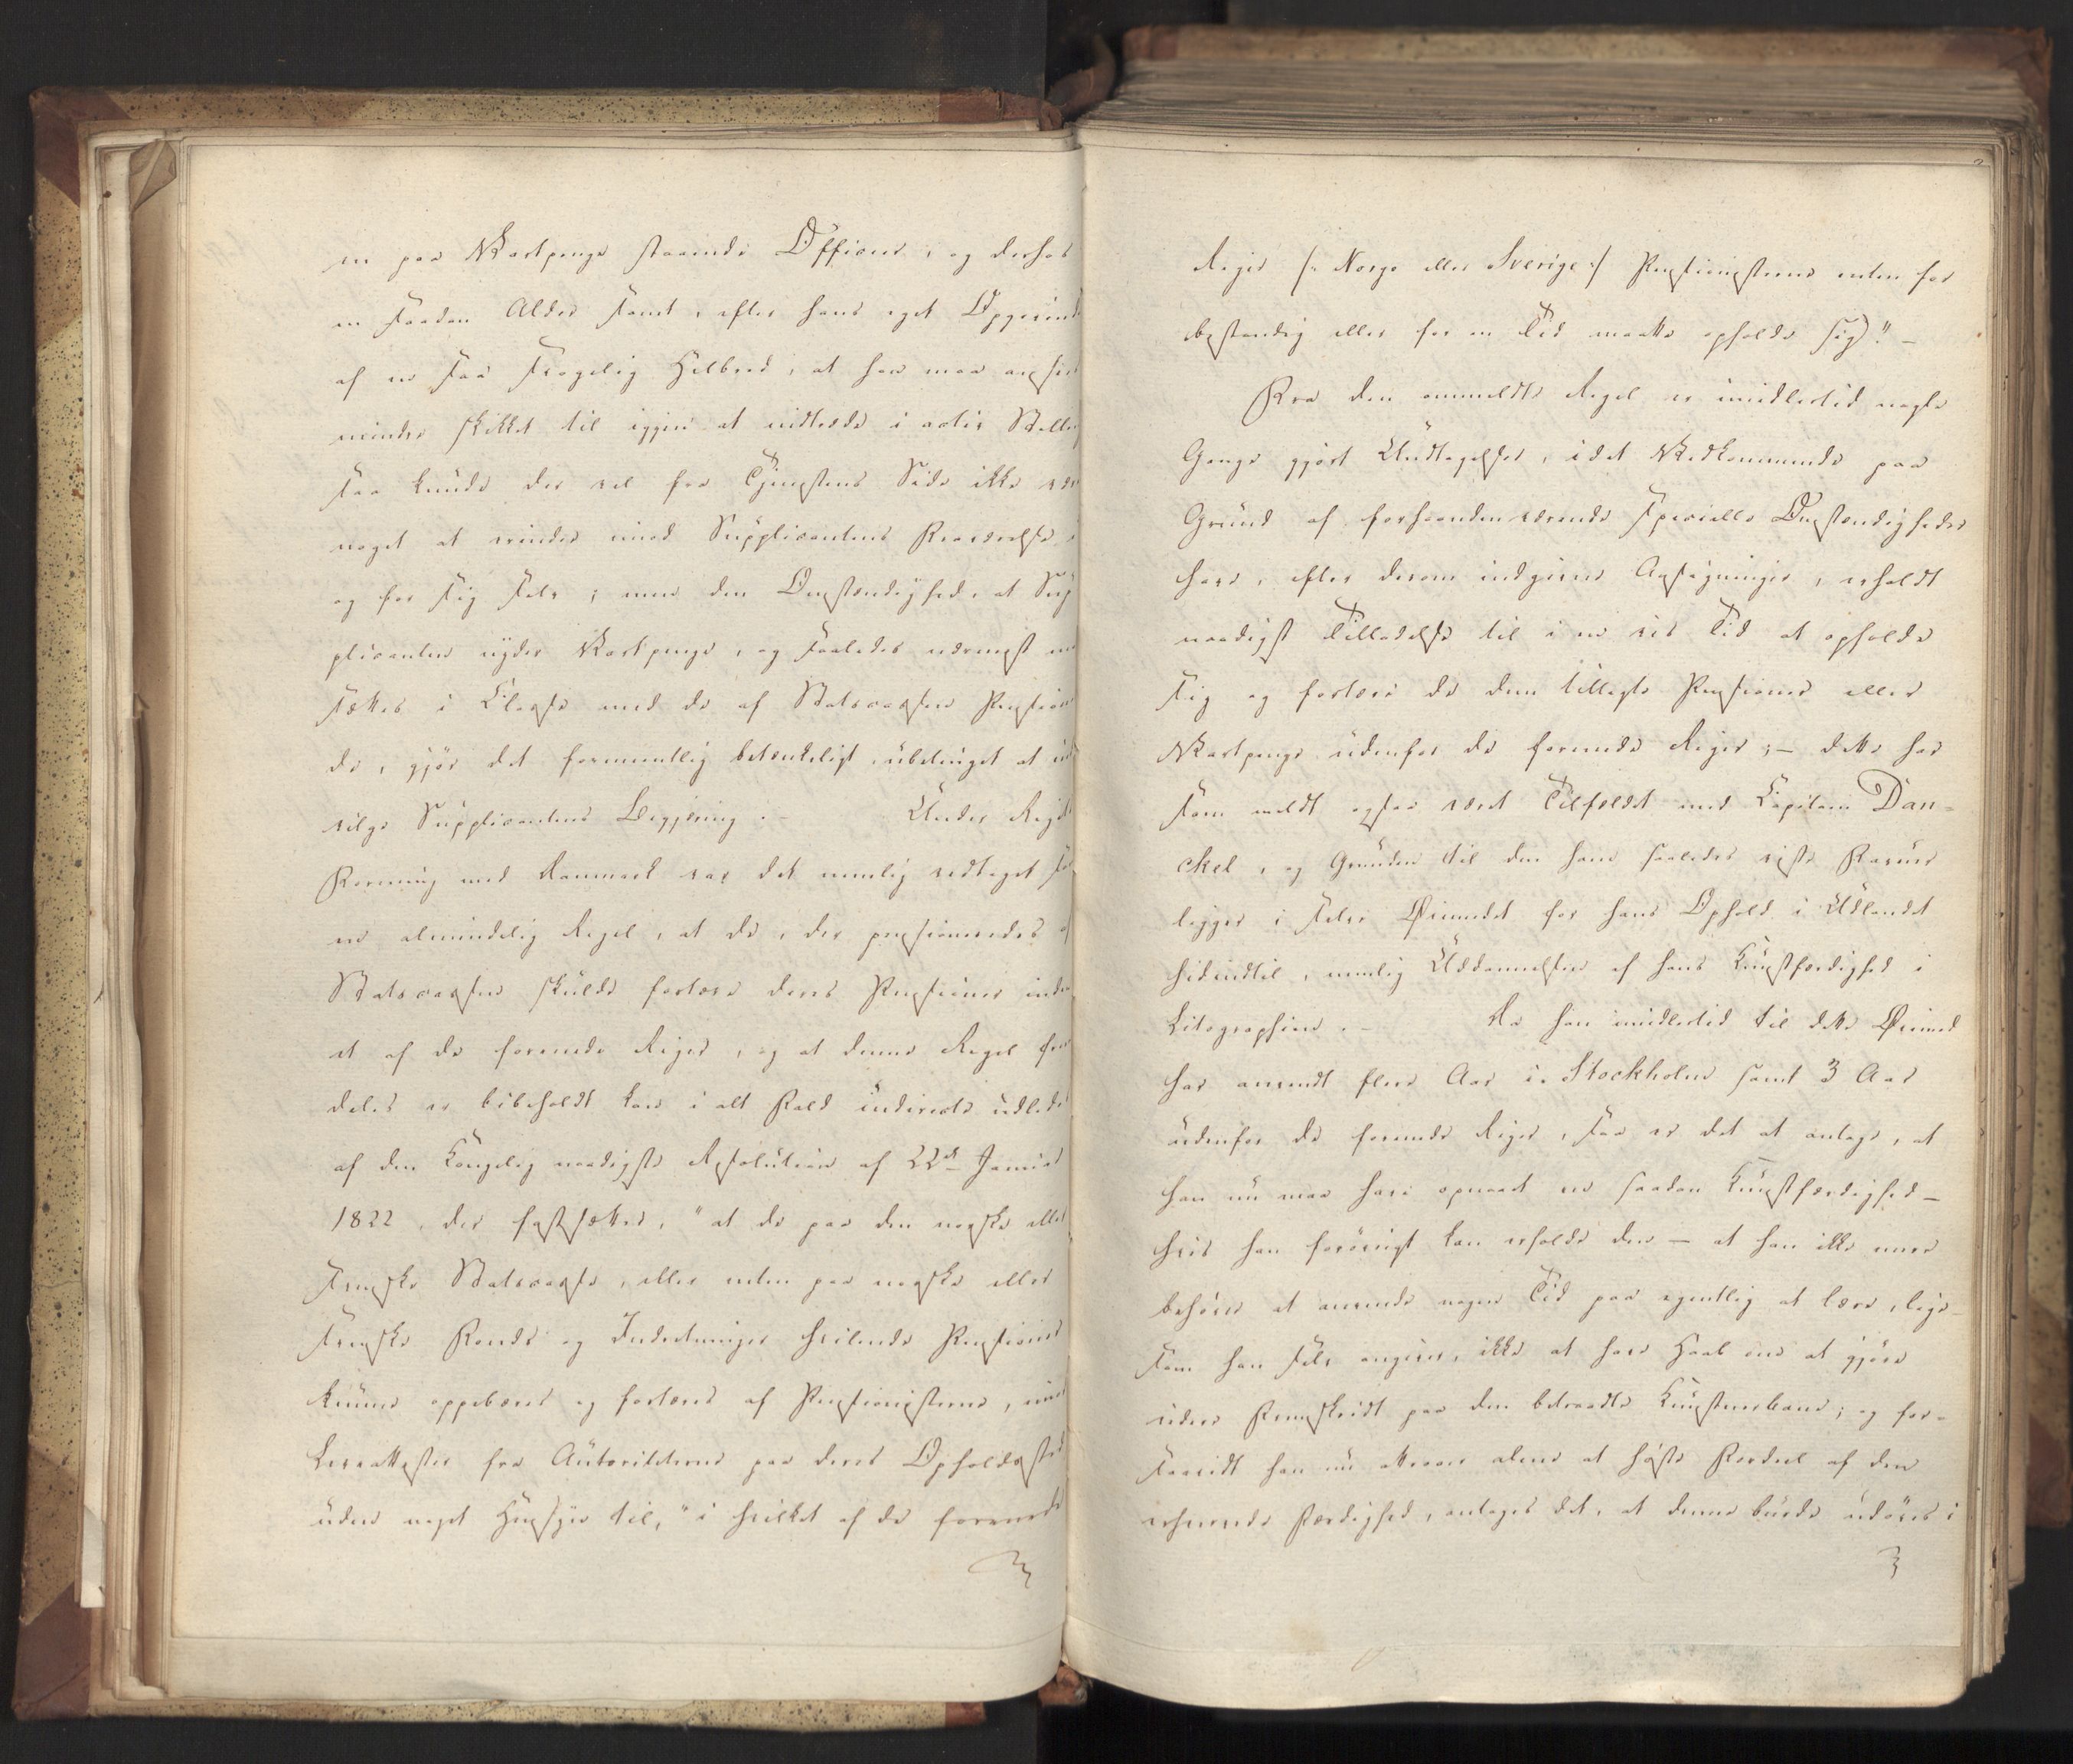 en paa Vartpenge staaende Officier, og derhos
en saadan Alder samt, efter hans eget Opgivend
af en saa svagelig Helbred, at han maa ansees
mindre skikket til igjen at indtræde i activ Stilling
saa kunde der vel fra Tjenestens Side ikke være
noget at erindre imod Supplicantens Fraværelse i
og for sig selv; men den Omstændighed, at Sup
plicanten nyder Vartpenge, og saaledes nærmest maa
sættes i Classe med de af Statscassen Pensione
de, gjør det formeentlig betænkeligt, ubetinget at ind
vilge Supplicantens Begjæring. – Under Rigets
Forening med Danmark var det nemlig vedtaget som
en almindelig Regel, at de, der pensioneredes af
Statscassen skulde fortære deres Pensioner inden
et af de forenede Riger, og at denne Regel frem
deles er bibeholdt kan i alt Fald indirecte udledes
af den Kongelig naadigste Resolution af 22de Januar
1822, der fastsætter, "at de paa den norske eller
svenske Statscasse, eller enten paa norske eller
svenske Fonds og Indretninger hvilende Pensioner
kunne oppebæres og fortæres af Pensionisterne, imod
Leveattester fra Autoriteterne paa deres Opholdssted
uden noget Hensyn til," i hvilket af de forenede
Riger /: Norge eller Sverige :/ Pensionisterne enten for
bestandig eller for en Tid maatte opholde sig)". –
Fra den anmeldte Regel er imidlertid nogle
Gange gjort Undtagelser, idet Vedkommende paa
Grund af forhaanden værende specielle Omstændigheder
have, efter derom indgivne Ansøgninger, erholdt
naadigst Tilladelse til i en vis Tid at opholde
sig og fortære de dem tillagte Pensioner eller
Vartpenge udenfor de forenede Riger; – dette har
som meldt ogsaa været Tilfældet med Capitain Dan=
ckel, og Grunden til den ham saaledes viste Faveur
ligger i selve Øiemedet for hans Ophold i Udlandet
hidindtil, nemlig Uddannelsen af hans Kunstfærdighed i
Litographien. – Da han imidlertid til dette Øiemed
har anvendt flere Aar i Stockholm samt 3 Aar
udenfor de forenede Riger, saa er det at antage, at
han nu maa have opnaaet en saadan Kunstfærdighed –
hvis han forøvrigt kan erholde den – at han ikke mere
behøver at anvende nogen Tid paa egentlig at lære, lige=
som han selv angiver, ikke at have Haab om at gjøre
videre Fremskridt paa den betraadte Kunstnerbane; og for=
saavidt han nu attraaer alene at høste Fordeel af den
erhvervede Færdighed, antages det, at denne burde udøves i